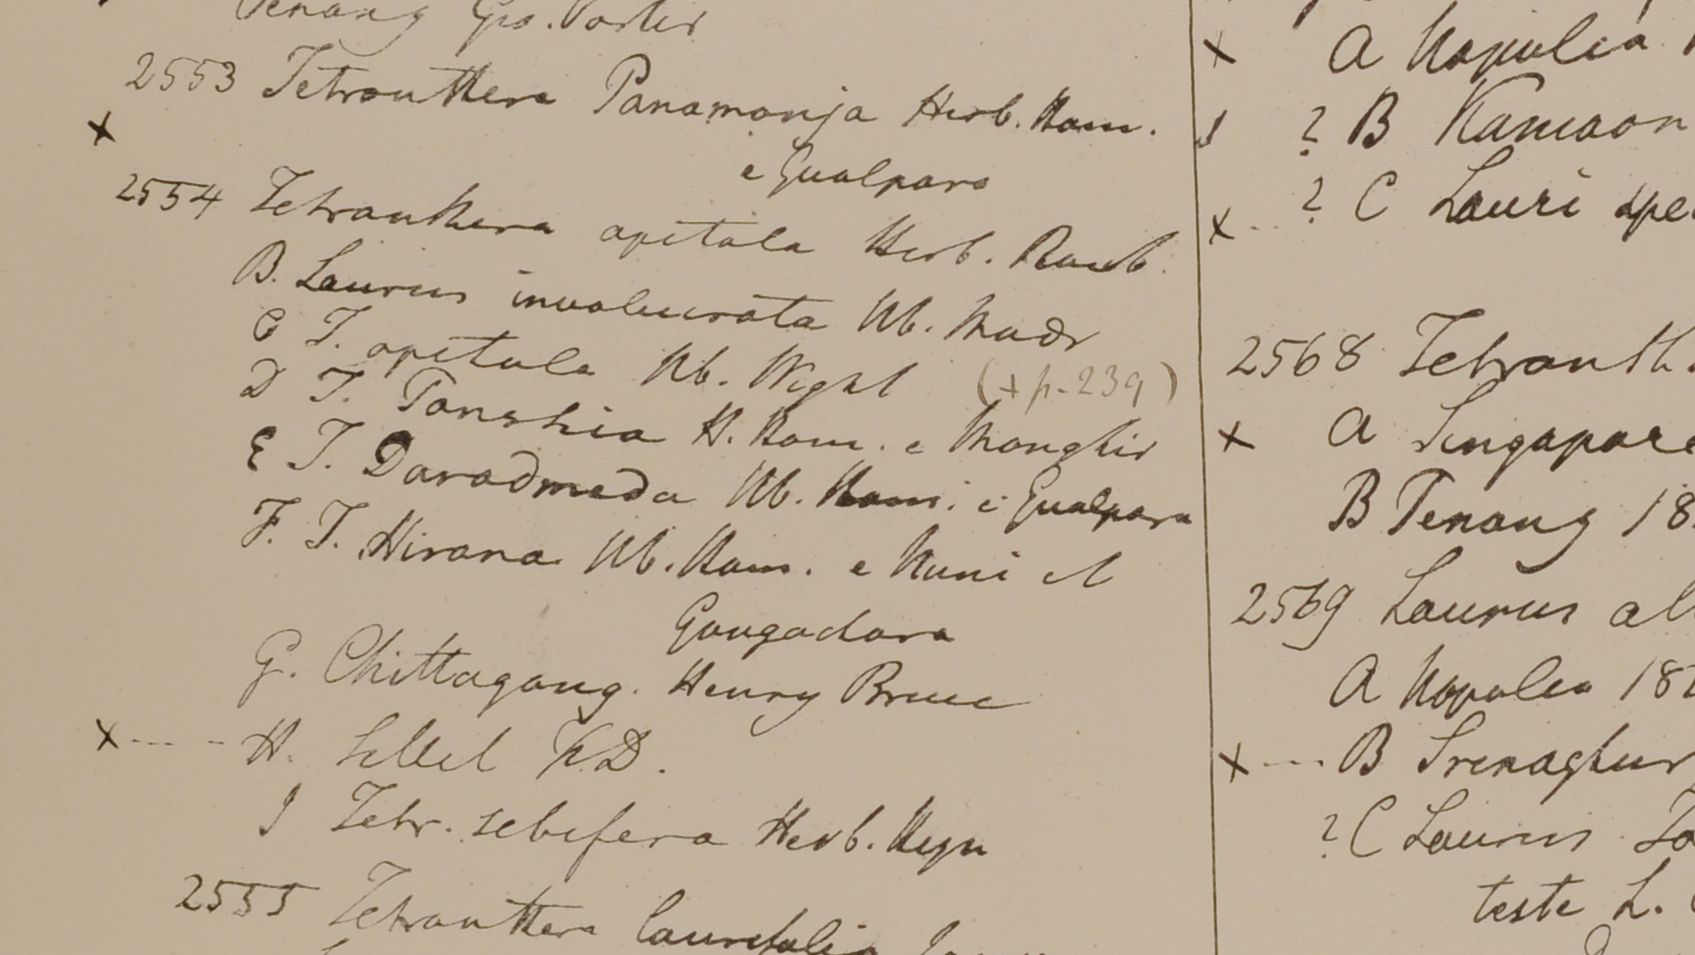 Penang Geo. Porter
2553 Tetranthera Panamonja Herb. Ham.
e Gualpara
2554 Tetranthera apetala Herb. Roxb.
B. Laurus involucrata Hb. Madr
C T. apetala Hb. Wight (+ p. 239)
D T. Tonshia H. Ham. e Monghir
E T. Daradmeda Hb. Ham. e Gualpara
F. T. Hirana Hb. Ham. e Nuni et
Gongachora
G. Chittagong. Henry Bruce
H. Sillet F.D.
I Tetr. sebifera Herb. Heyn
2555 Tetranthera laurifolia
A Napalia
? B Kamaon
? C Lauri spe
2568 Tetranth
A Singapore
B Penang 18
2569 Laurus al
A Napalia 182
B Srenaghur
? C Laurus
teste L.